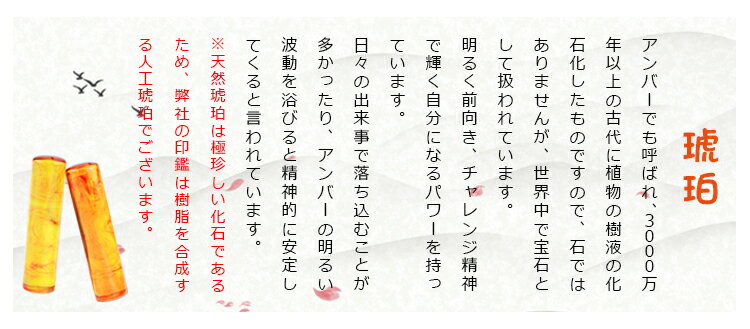 琥珀
アンバーでも呼ばれ、3000万
年以上の古代に植物の樹液の化
石化したものですので、石では
ありませんが、世界中で宝石と
して扱われています。
明るく前向き、チャレンジ精神
で輝く自分になるパワーを持っ
ています。
日々の出来事で落ち込むことが
多かったり、アンバーの明るい
波動を浴びると精神的に安定し
てくると言われています。
※天然琥珀は極珍しい化石である
ため、弊社の印鑑は樹脂を合成す
る人工琥珀でございます。